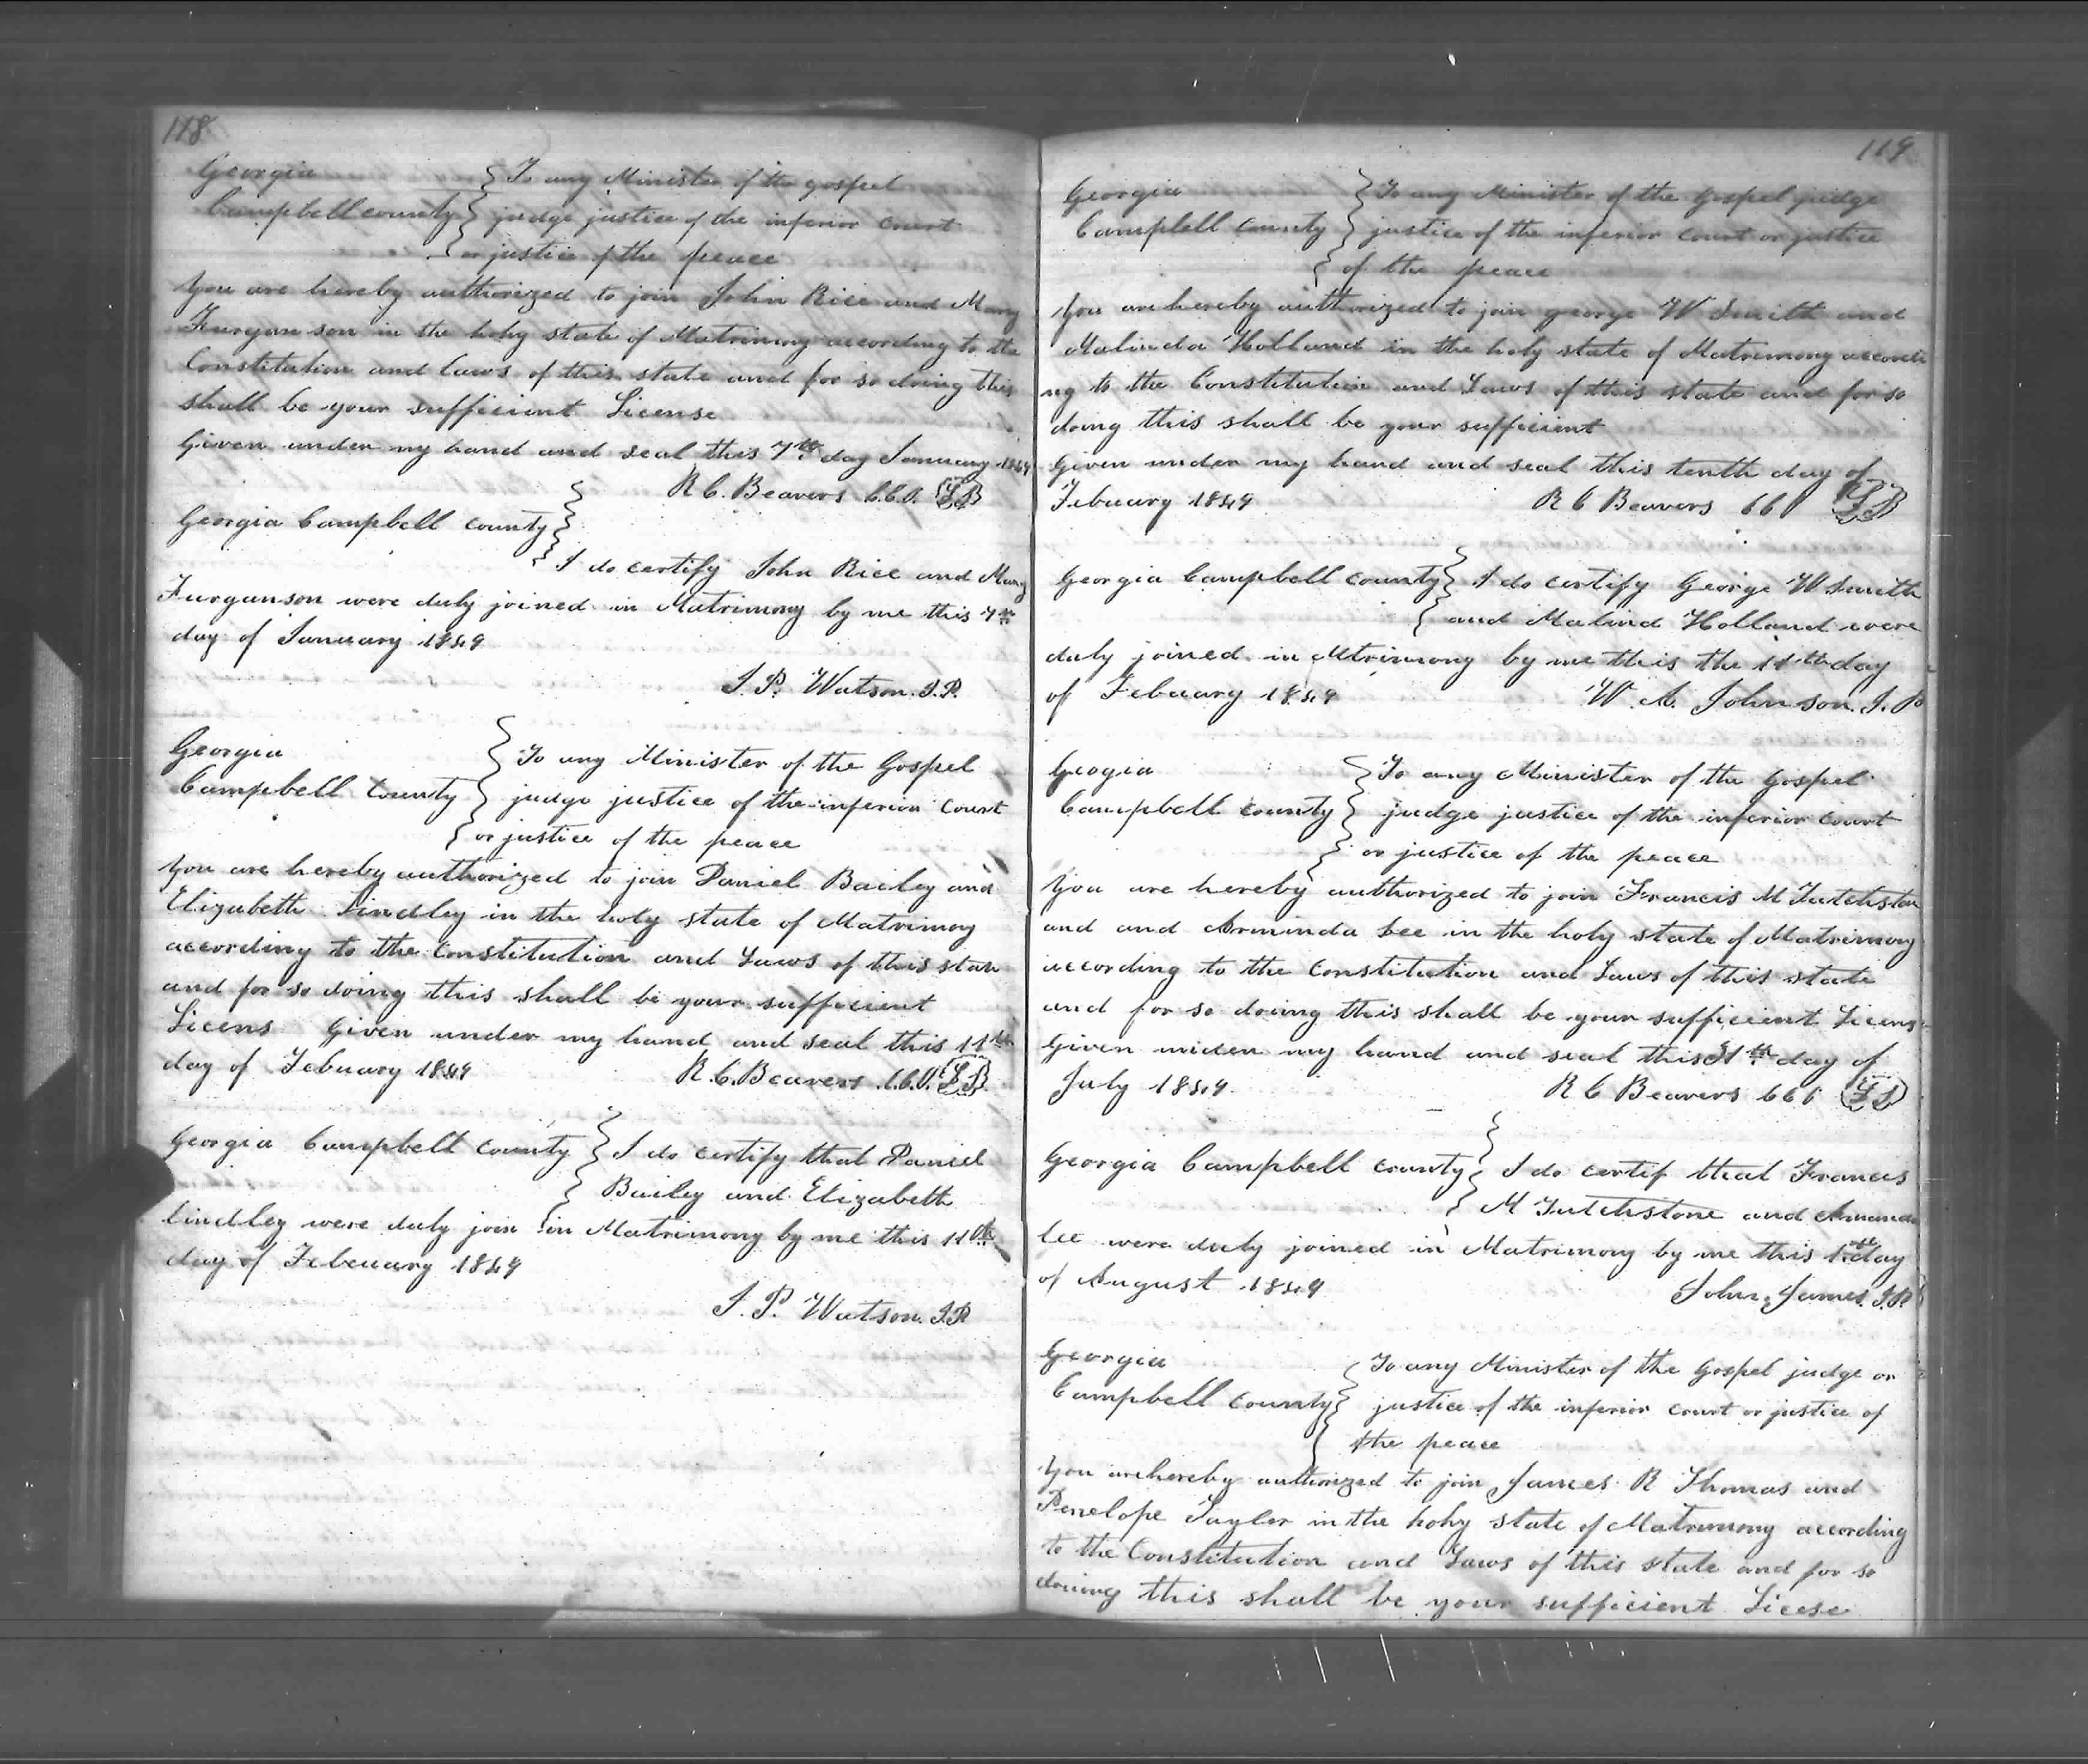 118
Georgia } To any Minister of the gospel
Campbell county } judge justice of the inferior court
} or justice of the peace
You are hereby authorized to join John Rice and Mary
Furgunson in the holy state of Matrimony according to the
Constitution and laws of this state and for so doing this
shall be your sufficient License
Given under my hand and seal this 7th day January 1849
R C. Beavers C.C.O. (L S)
Georgia Campbell county }
} I do certify John Rice and Mary
Furgunson were duly joined in Matrimony by me this 7th
day of January 1849
S. P. Watson. J.P.
Georgia } To any Minister of the Gospel
Campbell County } judge justice of the inferior court
} or justice of the peace
You are hereby authorized to join Daniel Bailey and
Elizabeth Lindley in the holy state of Matrimony
according to the Constitution and Laws of this state
and for so doing this shall be your sufficient
Licens Given under my hand and seal this 11th
day of Febuary 1849 R.C. Beavers C.C.O. (L.S.)
Georgia Campbell County } I do certify that Daniel
} Bailey and Elizabeth
lindley were duly join in Matrimony by me this 11th
day of Febuary 1849
S. P. Watson. J.P
119
Georgia } To any Minister of the Gospel judge
Campbell County } justice of the inferior court or justice
} of the peace
You are hereby authorized to join george W Smith and
Malinda Holland in the holy state of Matrimony accordi
ng to the Constitution and Laws of this state and for so
doing this shall be your sufficient
Given under my hand and seal this tenth day of
Febuary 1849 R C Beavers CCO (L S)
Georgia Campbell county } I do certify George W Smith
} and Malind Holland were
duly joined in Mtrimony by me this the 11th day
of Febuary 1849 W. A. Johnson. J. P
Geogia } To any Minister of the Gospel
Campbell county } judge justice of the inferior court
} or justice of the peace
You are hereby authorized to join Francis M Tutchston
and and Arminda Lee in the holy state of Matrimony
according to the Constitution and Laws of this state
and for so doing this shall be your sufficient Licens
Given under my hand and seal this 31st day of
July 1849. R C Beavers CCO (L S)
Georgia Campbell county } I do certif that Frances
} M Tutchstone and
lee were duly joined in Matrimony by me this 1st day
of August 1849 John James. J.P.
Georgia } To any Minister of the Gospel judge or
Campbell County } justice of the inferior court or justice of
} the peace
You are hereby authorized to join James R Thomas and
Penelope Tayler in the holy state of Matrimony according
to the Constitution and Laws of this state and for so
doing this shall be your sufficient Licese